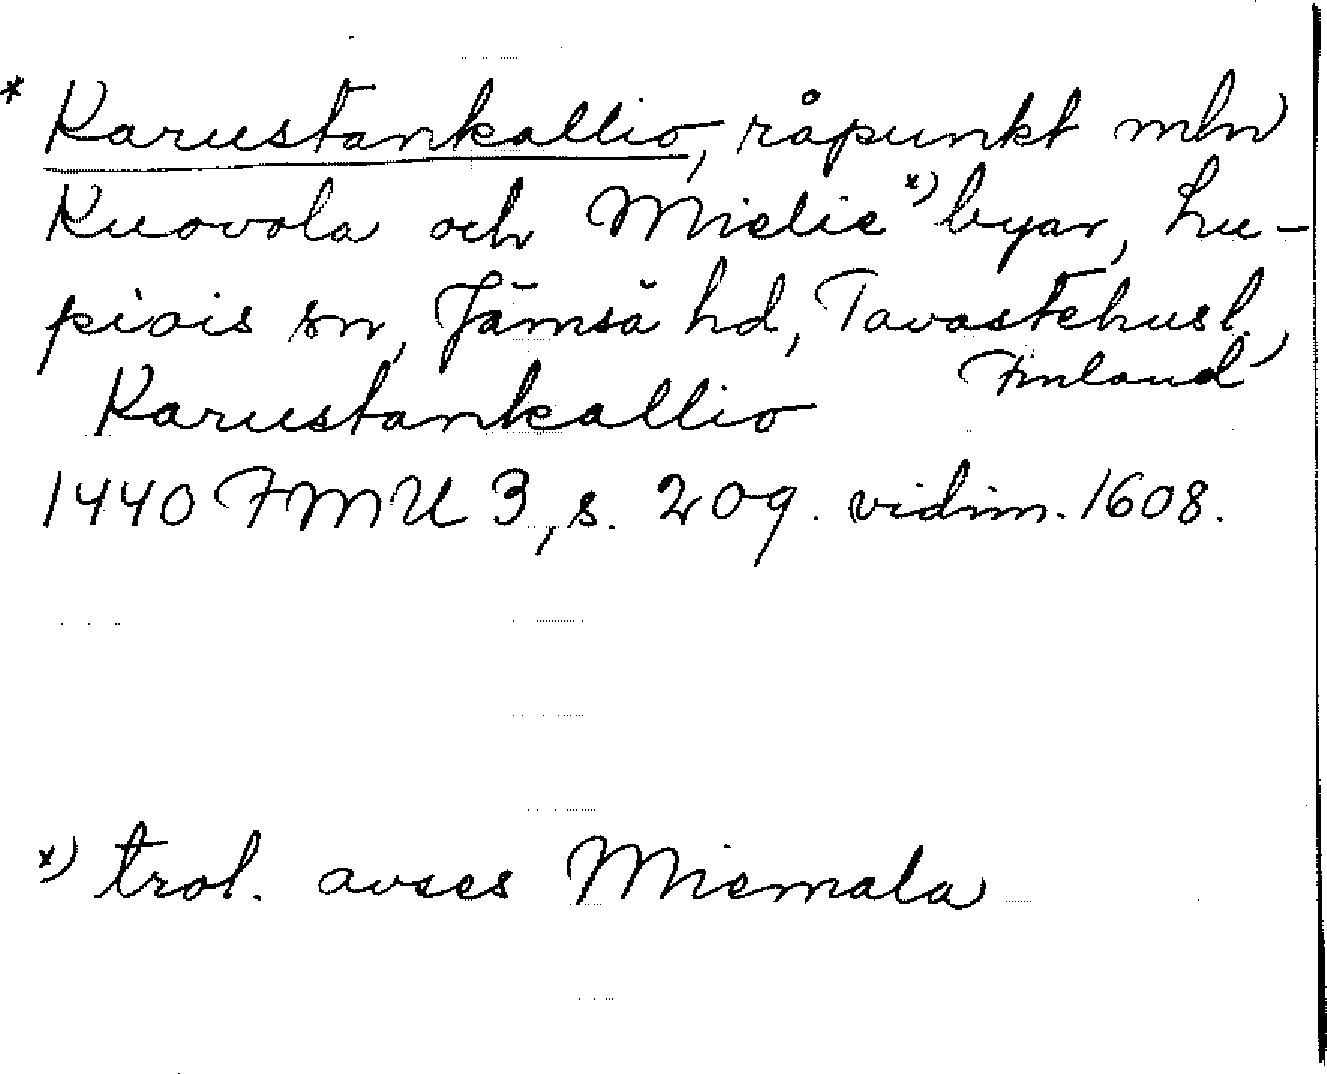 * Karustankallio, råpunkt mln
Kuovola och Mielie x) byar, Lu-
piois sn, Jämsä hd, Tavastehusl.,
Finland
Karustankallio
1440 FMU 3, s. 209. vidim. 1608.
x) trol. avses Miemala